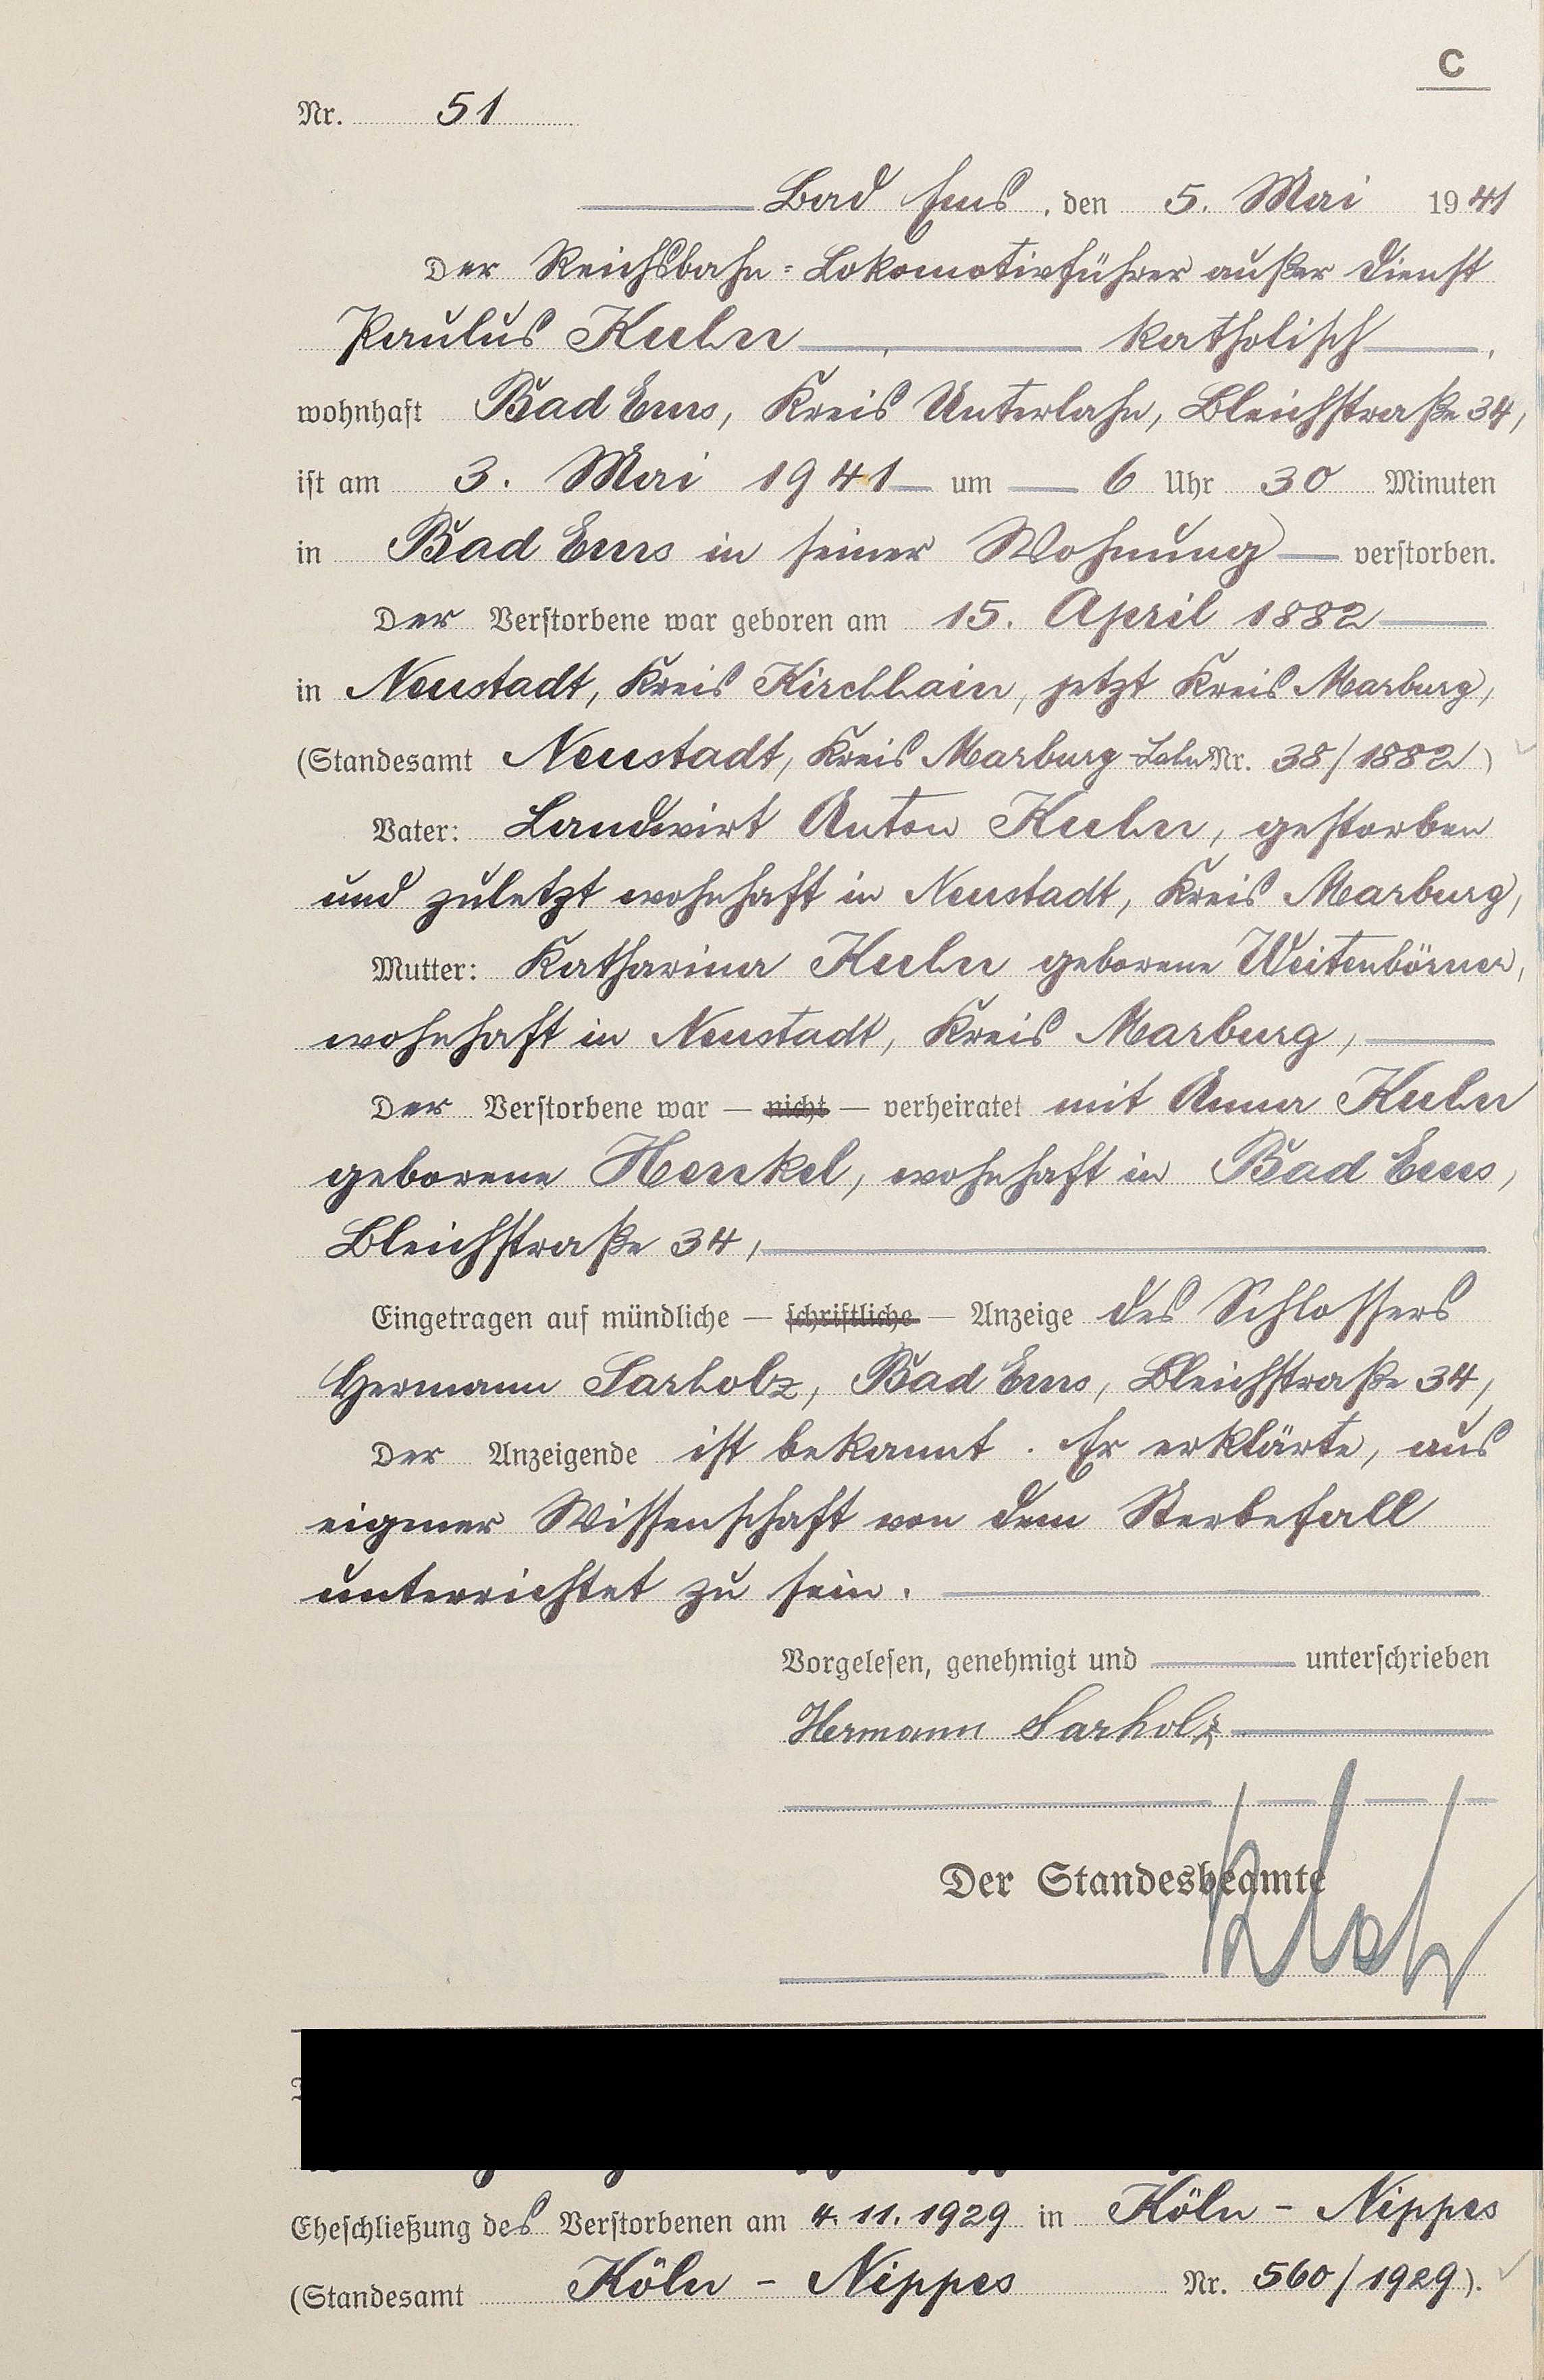 C
Nr. 51
Bad Ems, den 5. Mai 1941
Der Reichsbahn-Lokomotivführer außer Dienst
Paulus Kuhn, katholisch,
wohnhaft Bad Ems, Kreis Unterlahn, Bleichstraße 34,
ist am 3. Mai 1941 um 6 Uhr 30 Minuten
in Bad Ems in seiner Wohnung verstorben.
Der Verstorbene war geboren am 15. April 1882
in Neustadt, Kreis Kirchhain, jetzt Kreis Marburg,
(Standesamt Neustadt, Kreis Marburg-Lahn Nr. 38/1882)
Vater: Landwirt Anton Kuhn, gestorben
und zuletzt wohnhaft in Neustadt, Kreis Marburg,
Mutter: Katharina Kuhn geborene Weitenbörner,
wohnhaft in Neustadt, Kreis Marburg,
Der Verstorbene war — nicht — verheiratet mit Anna Kuhn
geborene Henkel, wohnhaft in Bad Ems,
Bleichstraße 34,
Eingetragen auf mündliche — schriftliche — Anzeige des Schlossers
Hermann Sarholz, Bad Ems, Bleichstraße 34,
Der Anzeigende ist bekannt. Er erklärte, aus
eigener Wissenschaft von dem Sterbefall
unterrichtet zu sein.
Vorgelesen, genehmigt und unterschrieben
Hermann Sarholz
Der Standesbeamte
Eheschließung des Verstorbenen am 4.11.1929 in Köln - Nippes
(Standesamt Köln - Nippes Nr. 560/1929).